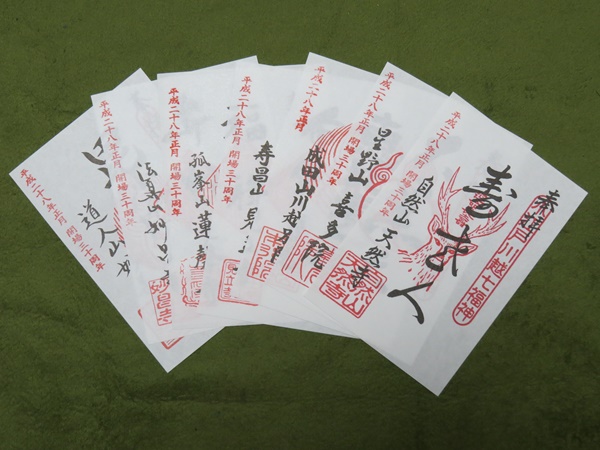 奉拝
小江戸川越七福神
寿老人
自然山 天然寺
自然山天然寺
平成二十八年正月 開場三十周年
星野山 喜多院
平成二十八年正月 開場三十周年
成田山川越別院
平成二十八年正月
寿昌山
平成二十八年正月 開場三十周年
孤峯山 蓮馨
平成二十八年正月 開場三十周年
妙昌寺
平成二十八年正月 開場三十周年
道人山 妙
平成二十八年正月 開場三十周年